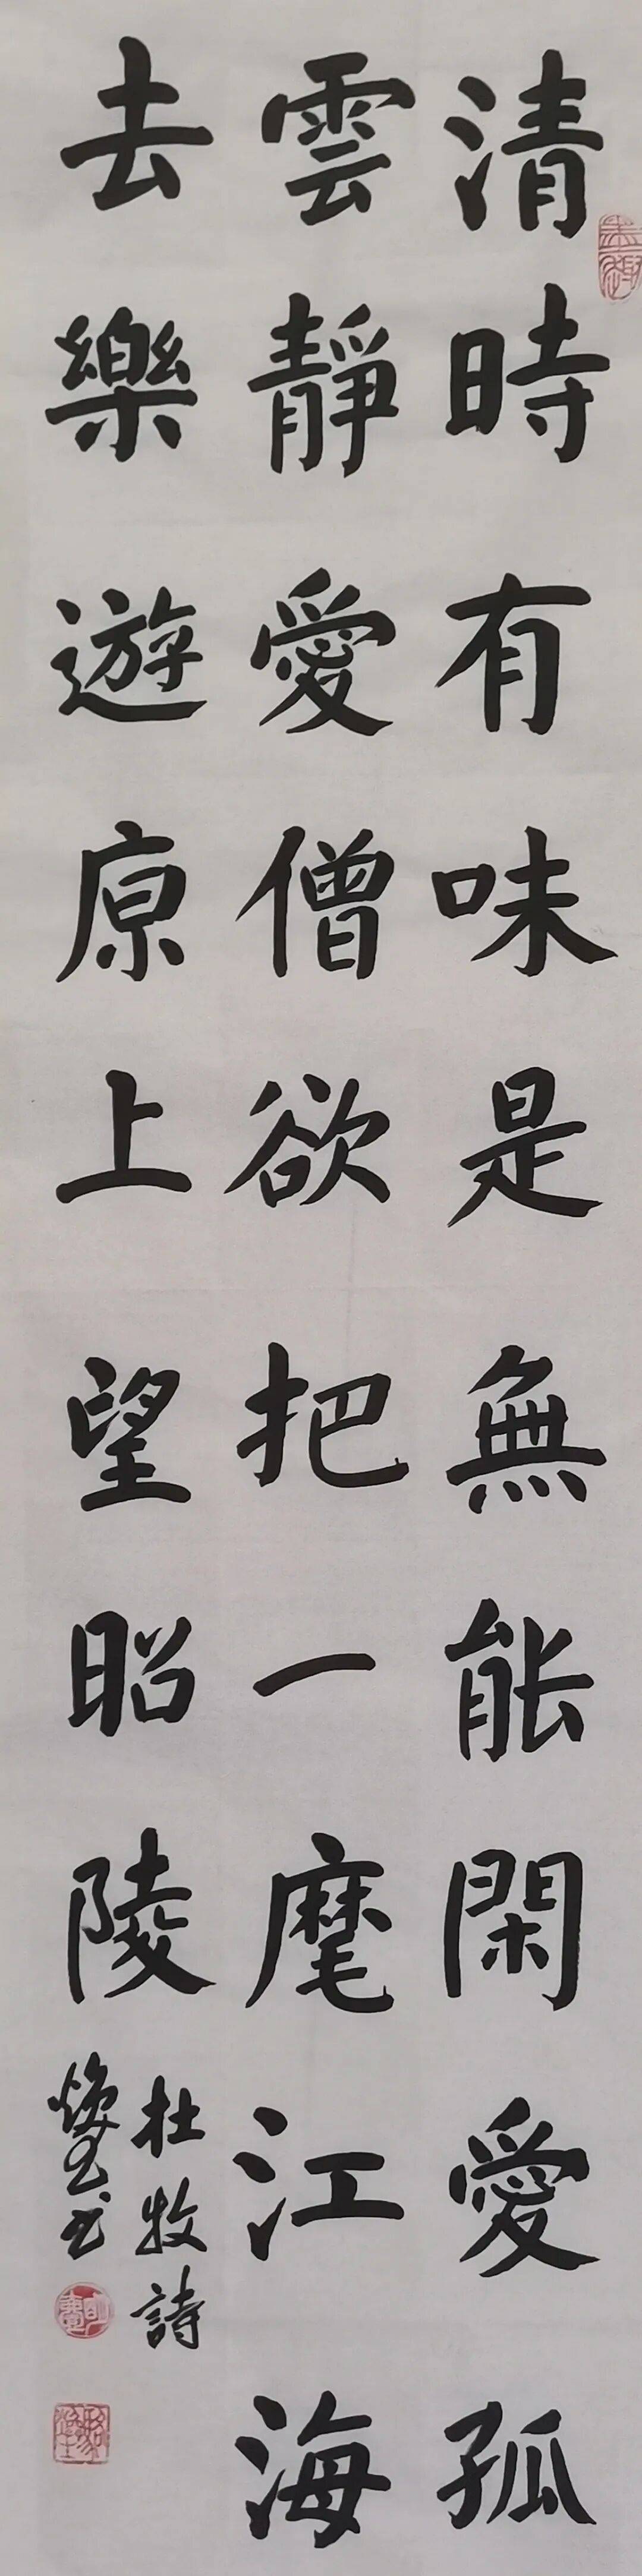 清時有味是無能閑愛孤
雲靜愛僧欲把一麾江海
去樂遊原上望昭陵
杜牧詩